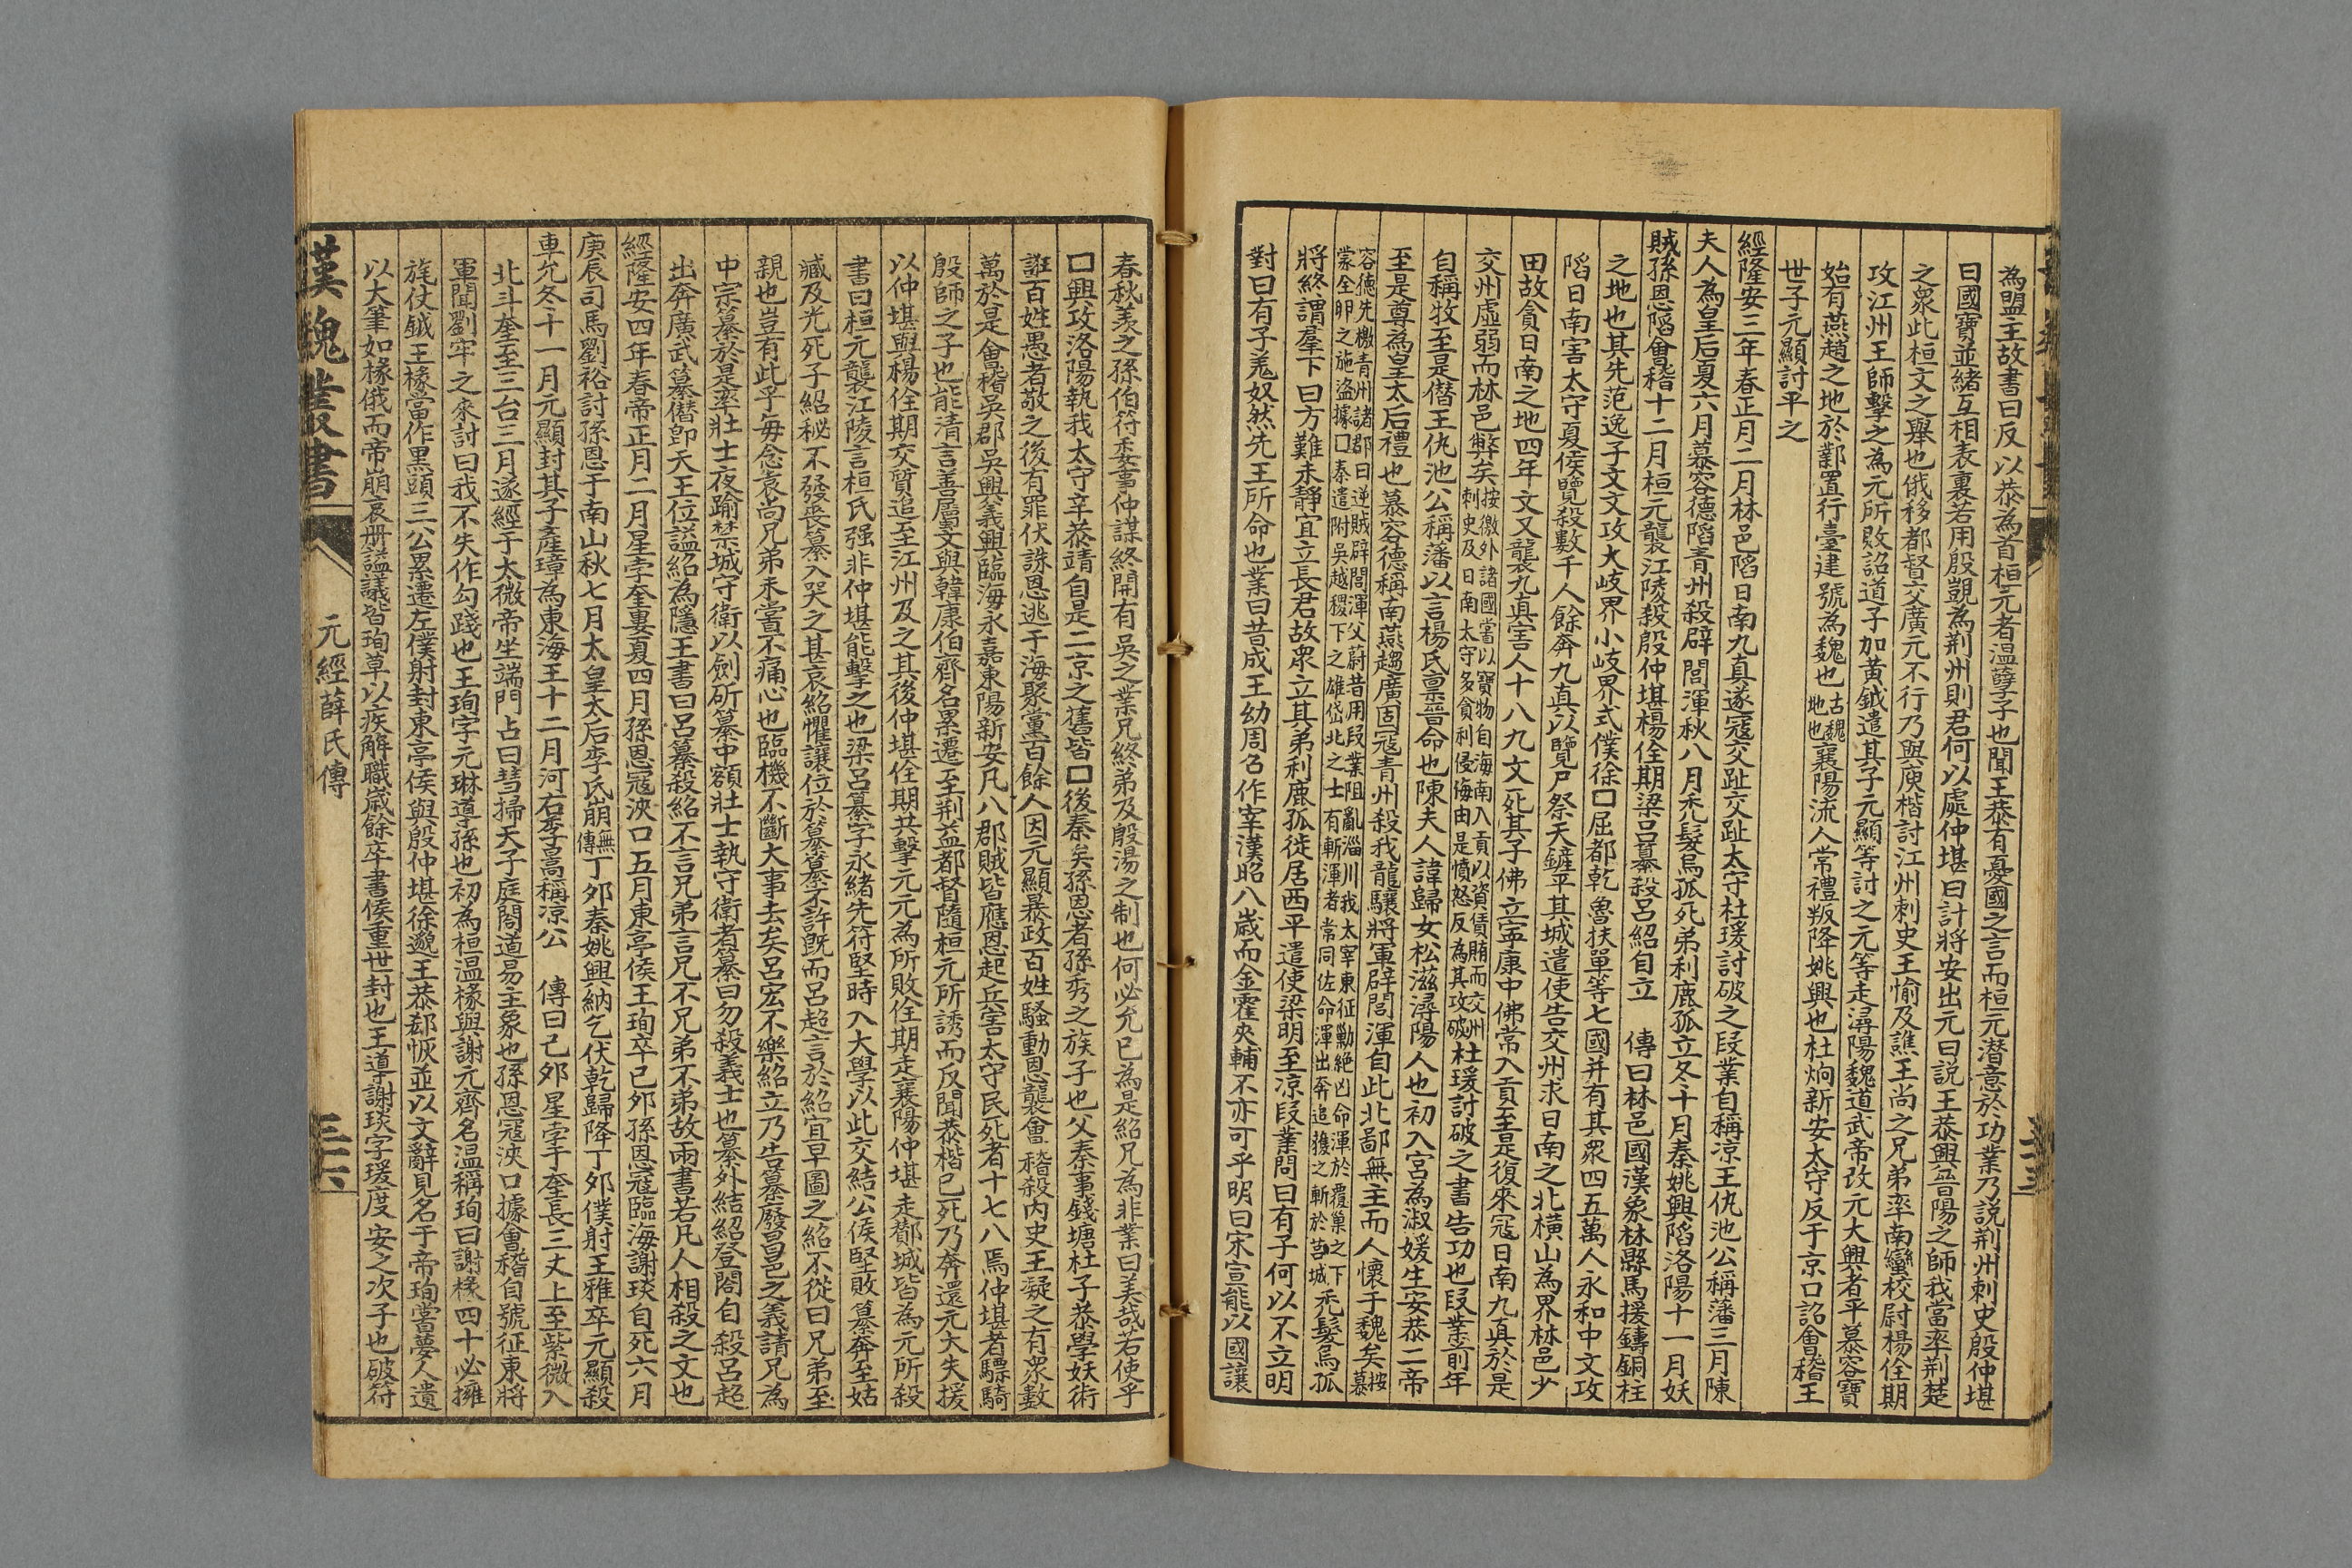 為盟主故書曰反以恭為首桓元者溫孽子也聞王恭有憂國之言而桓元潛意於功業乃說荆州刺史殷仲堪
曰國寶並緒互相表裏若用殷覬為荆州則君何以處仲堪曰計將安出元曰說王恭興晉陽之師我當率荆楚
之衆此桓文之舉也俄移都督交廣元不行乃與庾楷討江州刺史王愉及譙王尚之兄弟率南蠻校尉楊佺期
攻江州王師擊之為元所敗詔道子加黃鉞遣其子元顯等討之元等走潯陽魏道武帝改元大興者平慕容寶
始有燕趙之地於鄴置行臺建號為魏也古魏地也襄陽流人常禮叛降姚興也杜炯新安太守反于京口詔會稽王
世子元顯討平之
經隆安三年春正月二月林邑陷日南九真遂寇交趾交趾太守杜瑗討破之段業自稱凉王仇池公稱藩三月陳
夫人為皇后夏六月慕容德陷青州殺辟閭渾秋八月禿髮烏孤死弟利鹿孤立冬十月秦姚興陷洛陽十一月妖
賊孫恩陷會稽十二月桓元襲江陵殺殷仲堪楊佺期梁呂纂殺呂紹自立　傳曰林邑國漢象林縣馬援鑄銅柱
之地也其先范逸子文文攻大岐界小岐界式僕徐囗屈都乾魯扶單等七國并有其衆四五萬人永和中文攻
陷日南害太守夏侯覽殺數千人餘奔九真以覽尸祭天鏟平其城遣使告交州求日南之北橫山為界林邑少
田故貪日南之地四年文又襲九真害人十八九文死其子佛立寧康中佛常入貢至是復來寇日南九真於是
交州虛弱而林邑弊矣按徼外諸國當以寶物自海南入貢以資債賄而交州刺史及日南太守多貪利侵侮由是憤怒反為其攻破杜瑗討破之書告功也段業前年
自稱牧至是僭王仇池公稱藩以言楊氏禀晉命也陳夫人諱歸女松滋潯陽人也初入宮為淑媛生安恭二帝
至是尊為皇太后禮也慕容德稱南燕趨廣固寇青州殺我龍驤將軍辟閭渾自此北鄙無主而人懷于魏矣按慕
容德先檄青州諸郡曰逆賊辟閭渾父蔚昔用段業阻亂淄川我太宰東征勦絶凶命渾於覆巢之下蒙全卵之施盜據囗秦遣附吳越稷下之雄岱北之士有斬渾者常同佐命渾出奔追獲之斬於莒城禿髮烏孤
將終謂羣下曰方難未靜宜立長君故衆立其弟利鹿孤徙居西平遣使梁明至凉段業問曰有子何以不立明
對曰有子羌奴然先王所命也業曰昔成王幼周召作宰漢昭八歲而金霍夾輔不亦可乎明曰宋宣能以國讓
春秋羨之孫伯符委事仲謀終開有吳之業兄終弟及殷湯之制也何必允巳為是紹兄為非業曰美哉若使乎
囗興攻洛陽執我太守辛恭靖自是二京之舊皆囗後秦矣孫恩者孫秀之族子也父泰事錢塘杜子恭學妖術
誑百姓愚者敬之後有罪伏誅恩逃于海聚黨百餘人因元顯暴政百姓騷動恩襲會稽殺内史王凝之有衆數
萬於是會稽吳郡吳興義興臨海永嘉東陽新安凡八郡賊皆應恩起兵害太守民死者十七八焉仲堪者驃騎
殷師之子也能清言善屬文與韓康伯齊名累遷至荆益都督隨桓元所誘而反聞恭楷已死乃奔還元大失援
以仲堪與楊佺期交質追至江州及之其後仲堪佺期共擊元元為所敗佺期走襄陽仲堪走酇城皆為元所殺
書曰桓元襲江陵言桓氏强非仲堪能擊之也梁呂纂字永緒先符堅時入大學以此交結公侯堅敗纂奔至姑
臧及光死子紹秘不發喪纂入哭之甚哀紹懼讓位於纂纂不許旣而呂超言於紹宜早圖之紹不從曰兄弟至
親也豈有此乎毎念袁尚兄弟未嘗不痛心也臨機不斷大事去矣呂宏不樂紹立乃告纂廢昌邑之義請兄為
中宗纂於是率壯士夜踰禁城守衛以劍斫纂中額壯士執守衛者纂曰勿殺義士也纂外結紹登閣自殺呂超
出奔廣武纂僭卽天王位謚紹為隱王書曰呂纂殺紹不言兄弟言兄不兄弟不弟故兩書若凡人相殺之文也
經隆安四年春帝正月二月星孛奎婁夏四月孫恩寇浹口五月東亭侯王珣卒已夘孫恩寇臨海謝琰自死六月
庚辰司馬劉裕討孫恩于南山秋七月太皇太后李氏崩無傳丁夘秦姚興納乞伏乾歸降丁夘僕射王雅卒元顯殺
車允冬十一月元顯封其子產璋為東海王十二月河右李暠稱凉公　傳曰己夘星孛于奎長三丈上至紫微入
北斗奎至三台三月遂經于太微帝坐端門占曰彗掃天子庭閣道易主象也孫恩寇浹口據會稽自號征東將
軍聞劉牢之來討曰我不失作勾踐也王珣字元琳道孫也初為桓溫椽與謝元齊名溫稱珣曰謝椽四十必擁
旄仗鉞王椽當作黑頭三公累遷左僕射封東亭侯與殷仲堪徐邈王恭郄恢並以文辭見名于帝珣嘗夢人遺
以大筆如椽俄而帝崩哀册謚議皆珣草以疾解職歲餘卒書侯重世封也王導謝琰字瑗度安之次子也破符
漢魏叢書　元經薛氏傳